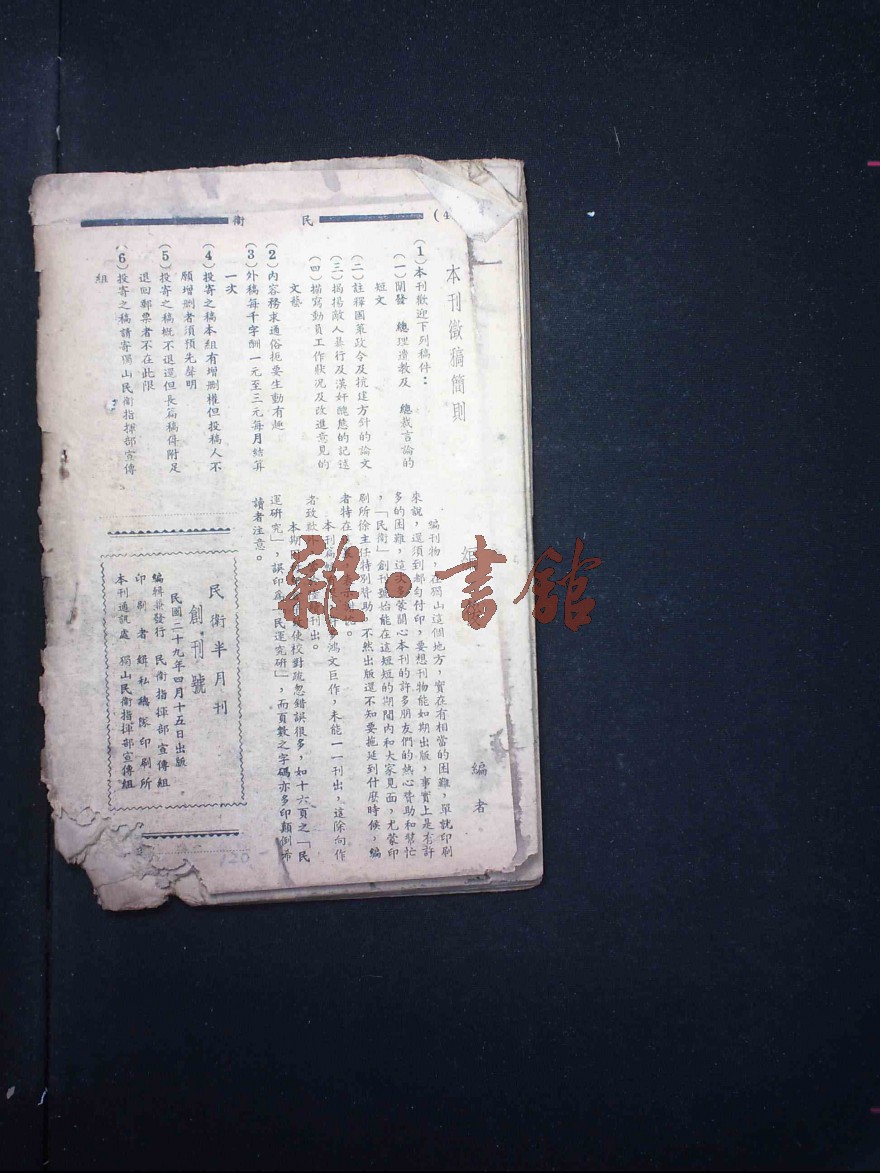 民衛
(4
本刊徵稿簡則
(1)本刊歡迎下列稿件：
(一)闡發　總理遺教及　總裁言論的
短文
(二)註釋國策政令及抗建方針的論文
(三)揭揚敵人暴行及漢奸醜態的記述
(四)描寫動員工作狀況及改進意見的
文藝
(2)內容務求通俗扼要生動有趣
(3)外稿每千字酬一元至三元每月結算
一次
(4)投寄之稿本組有增刪權但投稿人不
願增刪者須預先聲明
(5)投寄之稿概不退還但長篇稿件附足
退回郵票者不在此限
(6)投寄之稿請寄獨山民衛指揮部宣傳
組
編
編者
編刊物，在獨山這個地方，實在有相當的困難，單就印刷
來說，還須到都勻付印，要想刊物能如期出版，事實上是有許
多的困難，這次，蒙關心本刊的許多朋友們的熱心贊助和幫忙
，「民衛」創刊號始能在這短短的期間內和大家見面，尤蒙印
刷所徐主任特別贊助。不然出版還不知要拖延到什麼時候，編
者特在
本刊篇　鴻文巨作，未能一一刊出，這除向作
者致歉外　刊出。
本期　使校對疏忽錯誤很多，如十六頁之「民
運研究」，誤印爲「民運究研」，而頁數之字碼亦多印顛倒希
讀者注意。
民衛半月刊
創刊號
民國二十九年四月十五日出版
編輯兼發行　民衛指揮部宣傳組
印刷者　緝私總隊印刷所
本刊通訊處　獨山民衛指揮部宣傳組
120
雜·書館